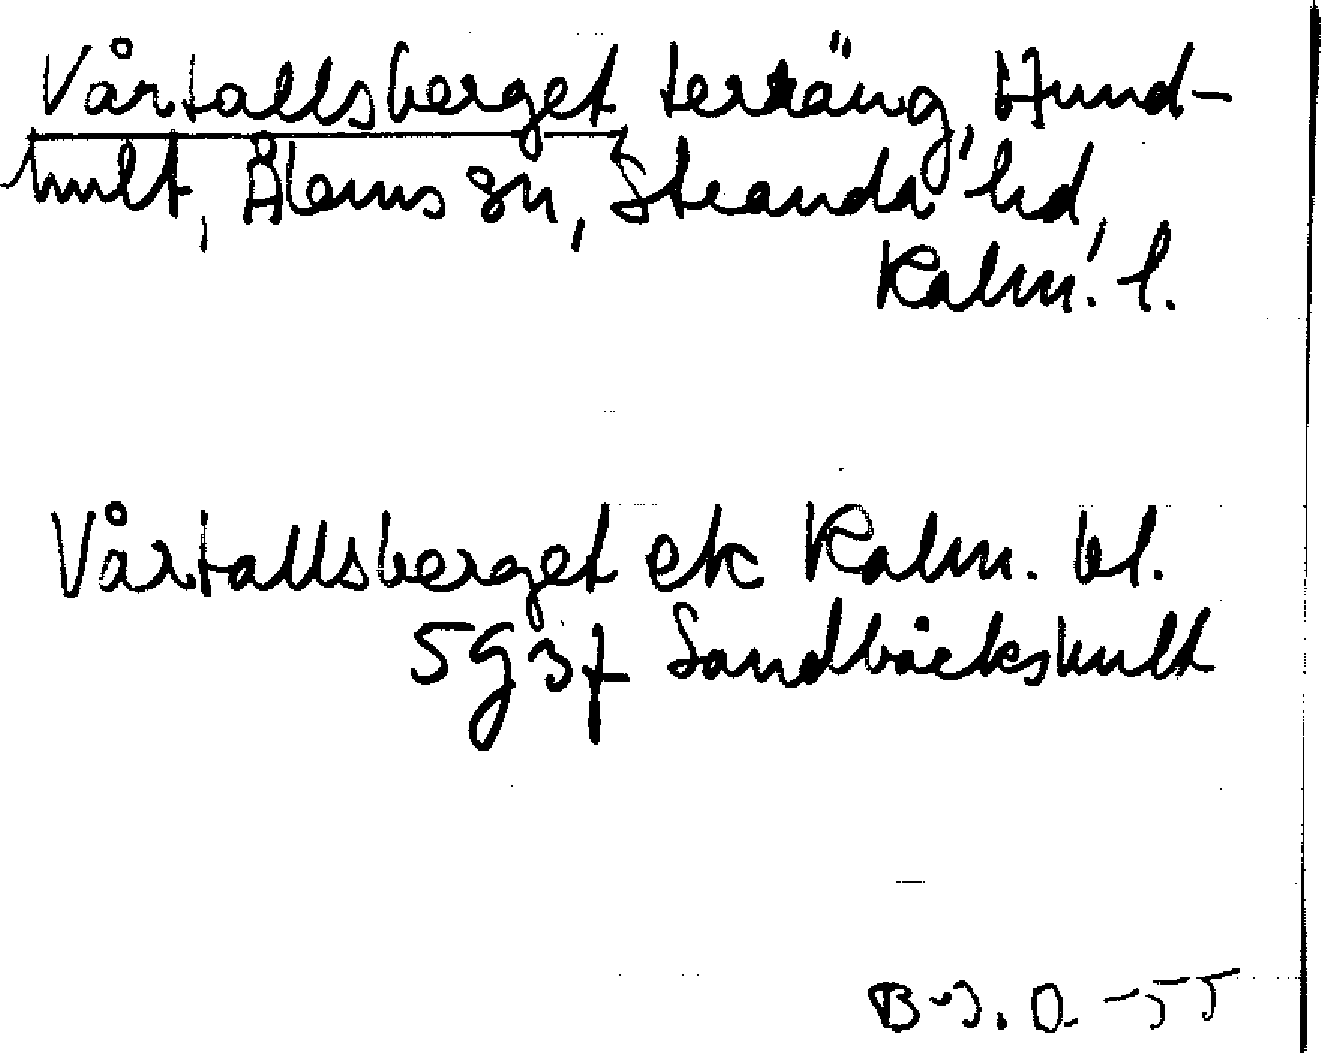 Vårtallsberget terräng, Hund-
hult, Ålems sn, Stranda hd,
Kalm. l.
Vårtallsberget ek Kalm. bl.
5G3f Sandbäckshult
B-J. O. -55